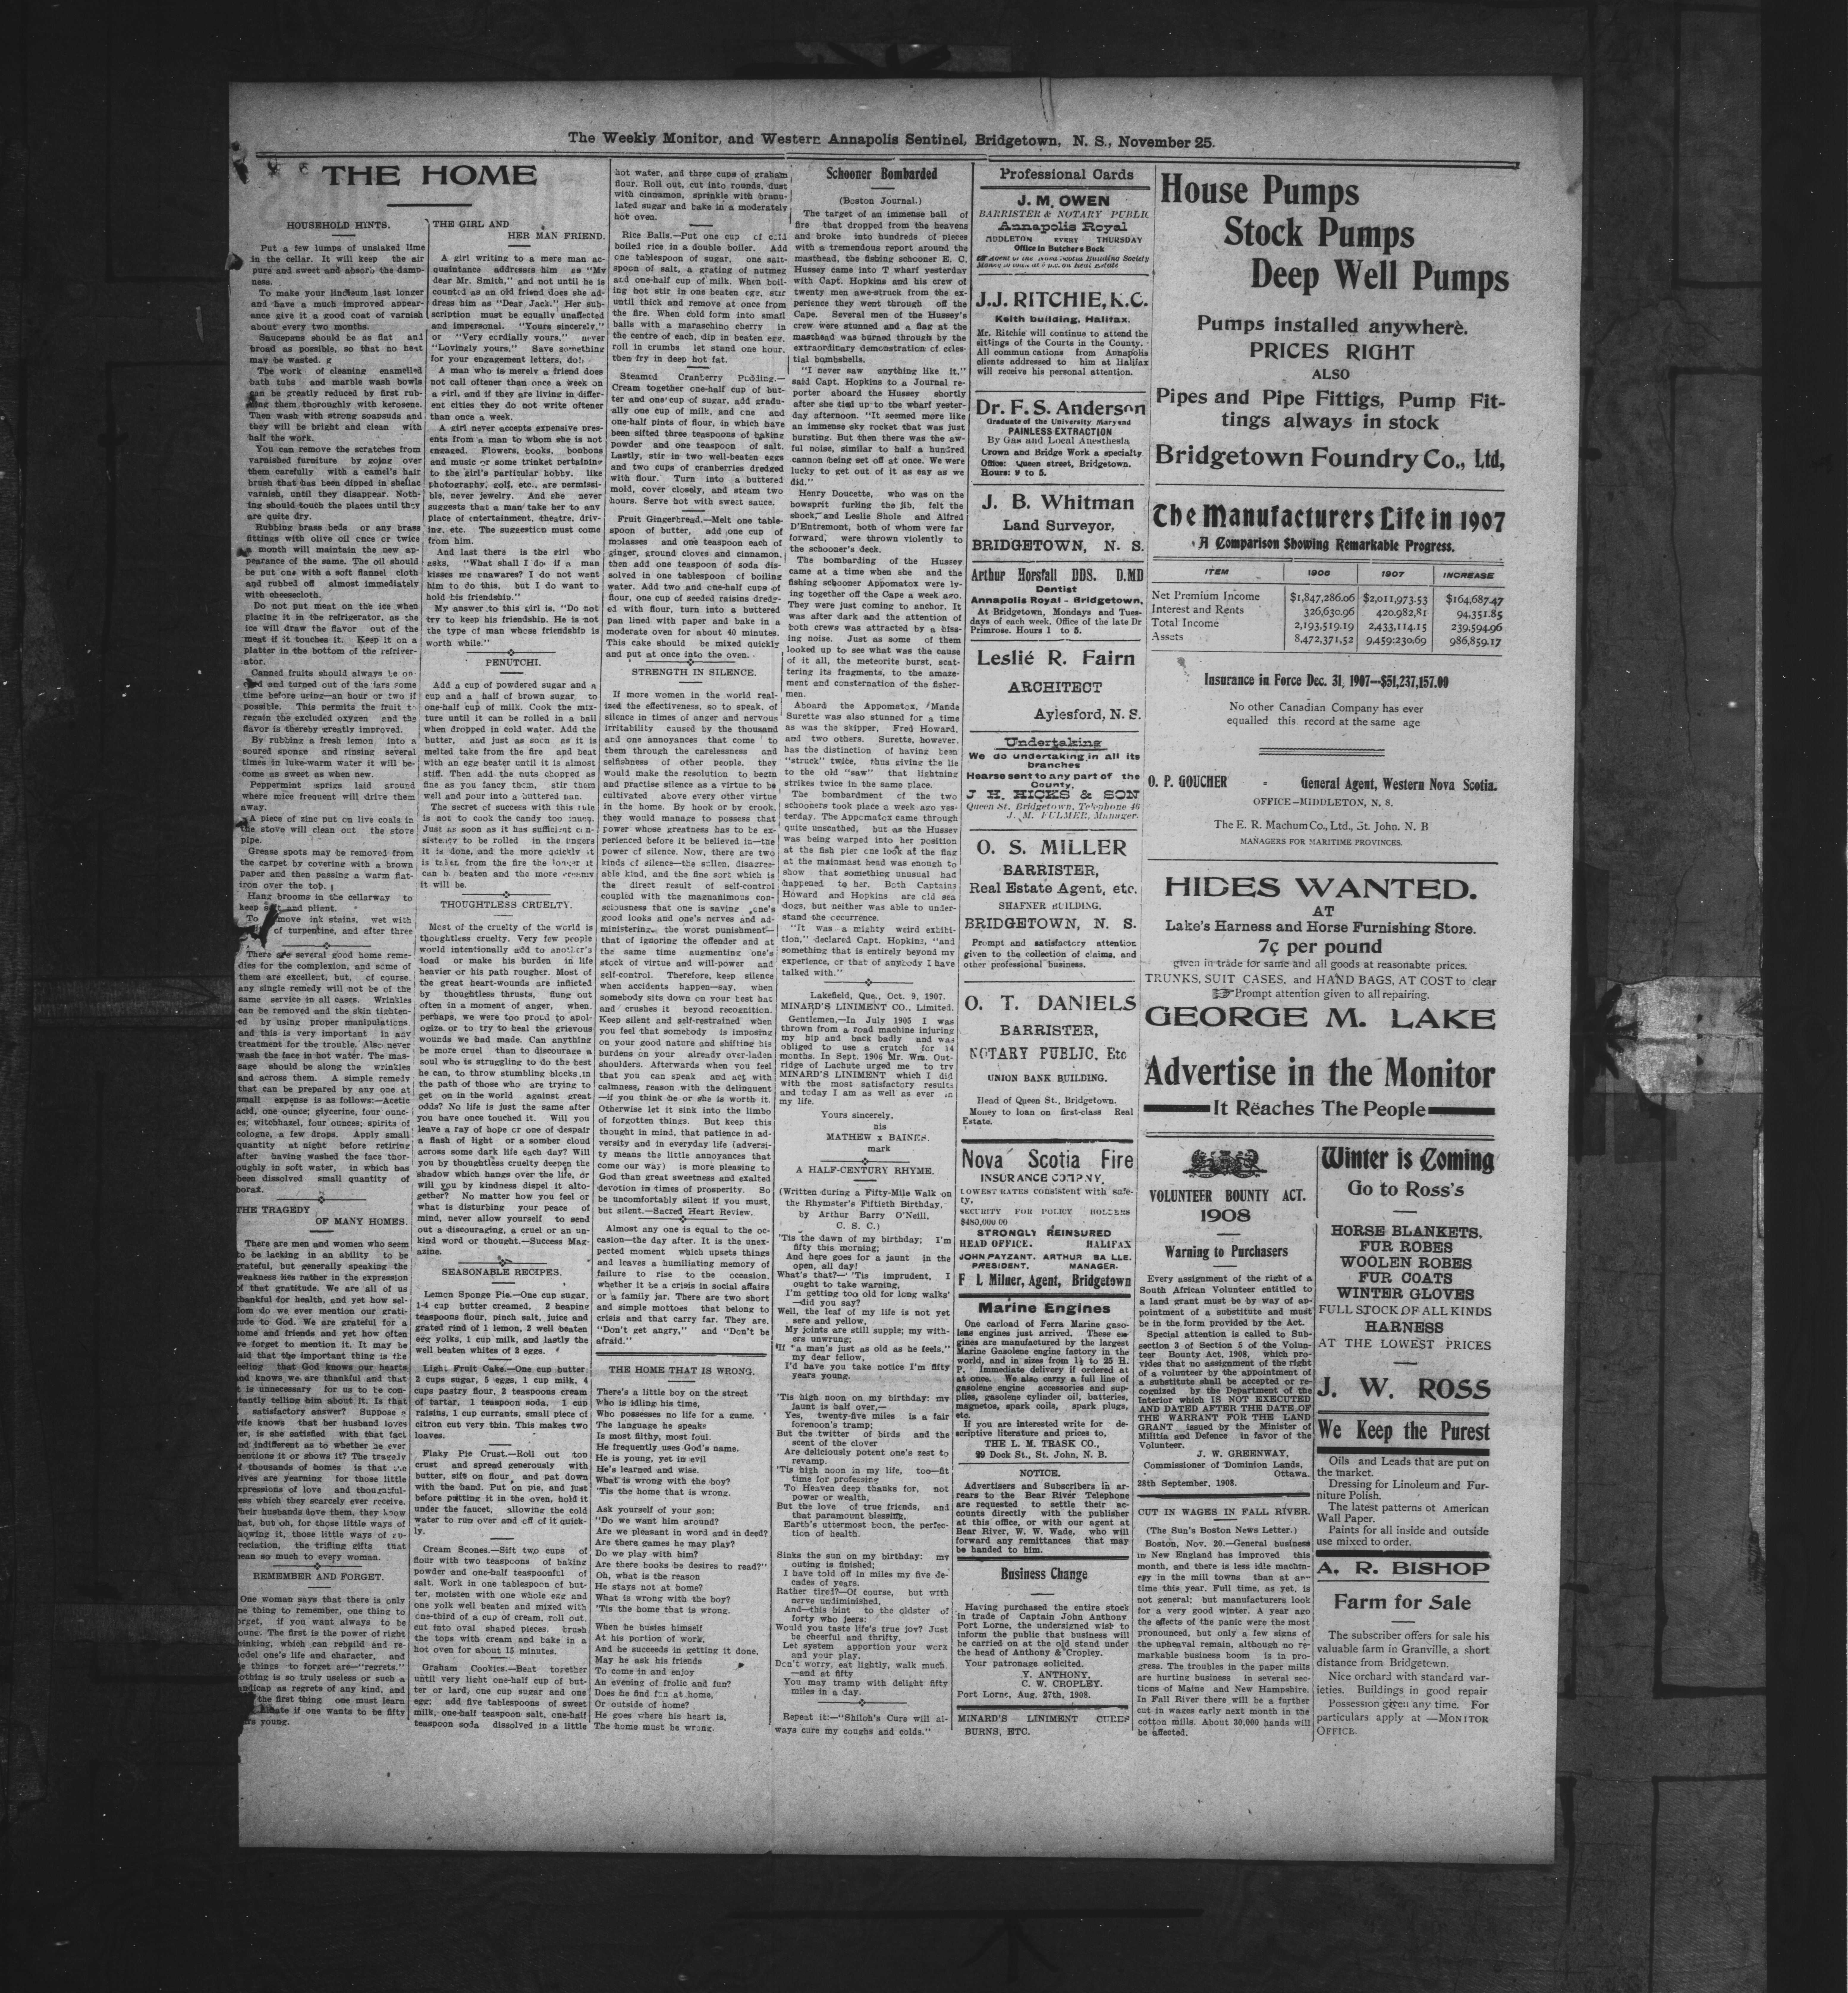 The Weekly Monitor, and Western Annapolis Sentinel, Bridgetown, N. S., November 25.
THE HOME
HOUSEHOLD HINTS.
Put a few lumps of unslaked lime
in the cellar. It will keep the air
pure and sweet and absorb the damp-
ness.
To make your linoleum last longer
and have a much improved appear-
ance give it a good coat of varnish
about every two months.
Saucepans should be as flat and
broad as possible, so that no heat
may be wasted.
The work of cleaning enamelled
bath tubs and marble wash bowls
can be greatly reduced by first rub-
bing them thoroughly with kerosene.
Then wash with strong soapsuds and
they will be bright and clean with
half the work.
You can remove the scratches from
varnished furniture by going over
them carefully with a camel's hair
brush that has been dipped in shellac
varnish, until they disappear. Noth-
ing should touch the places until they
are quite dry.
Rubbing brass beds or any brass
fittings with olive oil once or twice
a month will maintain the new ap-
pearance of the same. The oil should
be put one with a soft flannel cloth
and rubbed off almost immediately
with cheesecloth.
Do not put meat on the ice when
placing it in the refrigerator, as the
ice will draw the flavor out of the
meat if it touches it. Keep it on a
platter in the bottom of the refriger-
ator.
Canned fruits should always be op-
ened and turned out of the jars some
time before using—an hour or two if
possible. This permits the fruit to
regain the excluded oxygen and the
flavor is thereby greatly improved.
By rubbing a fresh lemon into a
soured sponge and rinsing several
times in luke-warm water it will be-
come as sweet as when new.
Peppermint sprigs laid around
where mice frequent will drive them
away.
A piece of zinc put on live coals in
the stove will clean out the stove
pipe.
Grease spots may be removed from
the carpet by covering with a brown
paper and then passing a warm flat-
iron over the top.
Hang brooms in the cellarway to
keep and pliant.
To move ink stains, wet with
of turpentine, and after three
There are several good home reme-
dies for the complexion, and some of
them are excellent, but, of course,
any single remedy will not be of the
same service in all cases. Wrinkles
can be removed and the skin tighten-
ed by using proper manipulations,
and this is very important in any
treatment for the trouble. Also never
wash the face in hot water. The mas-
sage should be along the wrinkles
and across them. A simple remedy
that can be prepared by any one at
small expense is as follows:—Acetic
acid, one ounce; glycerine, four ounc-
es; witchhazel, four ounces; spirits of
cologne, a few drops. Apply small
quantity at night before retiring
after having washed the face thor-
oughly in soft water, in which has
been dissolved small quantity of
borax.
THE TRAGEDY
OF MANY HOMES.
There are men and women who seem
to be lacking in an ability to be
grateful, but generally speaking the
weakness lies rather in the expression
of that gratitude. We are all of us
thankful for health, and yet how sel-
dom do we ever mention our grati-
tude to God. We are grateful for a
home and friends and yet how often
we forget to mention it. It may be
said that the important thing is the
feeling that God knows our hearts
and knows we are thankful and that
it is unnecessary for us to be con-
stantly telling him about it. Is that
a satisfactory answer? Suppose a
wife knows that her husband loves
her, is she satisfied with that fact
and indifferent as to whether he ever
mentions it or shows it? The tragedy
of thousands of homes is that the
wives are yearning for those little
expressions of love and thoughtful-
ness which they scarcely ever receive.
Their husbands love them, they know
that, but oh, for those little ways of
showing it, those little ways of ap-
preciation, the trifling gifts that
mean so much to every woman.
REMEMBER AND FORGET.
One woman says that there is only
one thing to remember, one thing to
forget, if you want always to be
young. The first is the power of right
thinking, which can rebuild and re-
model one's life and character, and
the things to forget are—"regrets."
Nothing is so truly useless or such a
handicap as regrets of any kind, and
the first thing one must learn
if one wants to be fifty
years young.
THE GIRL AND
HER MAN FRIEND.
A girl writing to a mere man ac-
quaintance addresses him as "My
dear Mr. Smith," and not until he is
counted as an old friend does she ad-
dress him as "Dear Jack." Her sub-
scription must be equally unaffected
and impersonal. "Yours sincerely,"
or "Very cordially yours," never
"Lovingly yours." Save something
for your engagement letters, do!
A man who is merely a friend does
not call oftener than once a week on
a girl, and if they are living in differ-
ent cities they do not write oftener
than once a week.
A girl never accepts expensive pres-
ents from a man to whom she is not
engaged. Flowers, books, bonbons
and music or some trinket pertaining
to the girl's particular hobby, like
photography, golf, etc., are permissi-
ble, never jewelry. And she never
suggests that a man take her to any
place of entertainment, theatre, driv-
ing, etc. The suggestion must come
from him.
And last there is the girl who
asks, "What shall I do if a man
kisses me unawares? I do not want
him to do this, but I do want to
hold his friendship."
My answer to this girl is, "Do not
try to keep his friendship. He is not
the type of man whose friendship is
worth while."
PENUTCHI.
Add a cup of powdered sugar and a
cup and a half of brown sugar, to
one-half cup of milk. Cook the mix-
ture until it can be rolled in a ball
when dropped in cold water. Add the
butter, and just as soon as it is
melted take from the fire and beat
with an egg beater until it is almost
stiff. Then add the nuts chopped as
fine as you fancy them, stir them
well and pour into a buttered pan.
The secret of success with this rule
is not to cook the candy too much.
Just as soon as it has sufficient con-
sistency to be rolled in the fingers
it is done, and the more quickly it
is taken from the fire the longer it
can be beaten and the more creamy
it will be.
THOUGHTLESS CRUELTY.
Most of the cruelty of the world is
thoughtless cruelty. Very few people
would intentionally add to another's
load or make his burden in life
heavier or his path rougher. Most of
the great heart-wounds are inflicted
by thoughtless thrusts, flung out
often in a moment of anger, when,
perhaps, we were too proud to apol-
ogize, or to try to heal the grievous
wounds we had made. Can anything
be more cruel than to discourage a
soul who is struggling to do the best
he can, to throw stumbling blocks in
the path of those who are trying to
get on in the world against great
odds? No life is just the same after
you have once touched it. Will you
leave a ray of hope or one of despair
a flash of light or a somber cloud
across some dark life each day? Will
you by thoughtless cruelty deepen the
shadow which hangs over the life, or
will you by kindness dispel it alto-
gether? No matter how you feel or
what is disturbing your peace of
mind, never allow yourself to send
out a discouraging, a cruel or an un-
kind word or thought.—Success Mag-
azine.
SEASONABLE RECIPES.
Lemon Sponge Pie.—One cup sugar,
1-4 cup butter creamed, 2 heaping
teaspoons flour, pinch salt, juice and
grated rind of 1 lemon, 2 well beaten
egg yolks, 1 cup milk, and lastly the
well beaten whites of 2 eggs.
Light Fruit Cake.—One cup butter,
2 cups sugar, 5 eggs, 1 cup milk, 4
cups pastry flour, 2 teaspoons cream
of tartar, 1 teaspoon soda, 1 cup
raisins, 1 cup currants, small piece of
citron cut very thin. This makes two
loaves.
Flaky Pie Crust.—Roll out top
crust and spread generously with
butter, sift on flour, and pat down
with the hand. Put on pie, and just
before putting it in the oven, hold it
under the faucet, allowing the cold
water to run over and off of it quick-
ly.
Cream Scones.—Sift two cups of
flour with two teaspoons of baking
powder and one-half teaspoonful of
salt. Work in one tablespoon of but-
ter, moisten with one whole egg and
one yolk well beaten and mixed with
one-third of a cup of cream, roll out,
cut into oval shaped pieces, brush
the tops with cream and bake in a
hot oven for about 15 minutes.
Graham Cookies.—Beat together
until very light one-half cup of but-
ter or lard, one cup sugar and one
egg; add five tablespoons of sweet
milk, one-half teaspoon salt, one-half
teaspoon soda dissolved in a little
hot water, and three cups of graham
flour. Roll out, cut into rounds, dust
with cinnamon, sprinkle with branu-
lated sugar and bake in a moderately
hot oven.
Rice Balls.—Put one cup of cold
boiled rice in a double boiler. Add
one tablespoon of sugar, one salt-
spoon of salt, a grating of nutmeg
and one-half cup of milk. When boil-
ing hot stir in one beaten egg, stir
until thick and remove at once from
the fire. When cold form into small
balls with a maraschino cherry in
the centre of each, dip in beaten egg,
roll in crumbs let stand one hour,
then fry in deep hot fat.
Steamed Cranberry Pudding.—
Cream together one-half cup of but-
ter and one cup of sugar, add gradu-
ally one cup of milk, and one and
one-half pints of flour, in which have
been sifted three teaspoons of baking
powder and one teaspoon of salt.
Lastly, stir in two well-beaten eggs
and two cups of cranberries dredged
with flour. Turn into a buttered
mold, cover closely, and steam two
hours. Serve hot with sweet sauce.
Fruit Gingerbread.—Melt one table-
spoon of butter, add one cup of
molasses and one teaspoon each of
ginger, ground cloves and cinnamon,
then add one teaspoon of soda dis-
solved in one tablespoon of boiling
water. Add two and one-half cups of
flour, one cup of seeded raisins dredg-
ed with flour, turn into a buttered
pan lined with paper and bake in a
moderate oven for about 40 minutes.
This cake should be mixed quickly
and put at once into the oven.
STRENGTH IN SILENCE.
If more women in the world real-
ized the effectiveness, so to speak, of
silence in times of anger and nervous
irritability caused by the thousand
and one annoyances that come to
them through the carelessness and
selfishness of other people, they
would make the resolution to begin
and practise silence as a virtue to be
cultivated above every other virtue
in the home. By hook or by crook,
they would manage to possess that
power whose greatness has to be ex-
perienced before it be believed in—the
power of silence. Now, there are two
kinds of silence—the sullen, disagree-
able kind, and the fine sort which is
the direct result of self-control
coupled with the magnanimous con-
sciousness that one is saving one's
good looks and one's nerves and ad-
ministering the worst punishment—
that of ignoring the offender and at
the same time augmenting one's
stock of virtue and will-power and
self-control. Therefore, keep silence
when accidents happen—say, when
somebody sits down on your best hat
and crushes it beyond recognition.
Keep silent and self-restrained when
you feel that somebody is imposing
on your good nature and shifting his
burdens on your already over-laden
shoulders. Afterwards when you feel
that you can speak and act with
calmness, reason with the delinquent
—if you think he or she is worth it.
Otherwise let it sink into the limbo
of forgotten things. But keep this
thought in mind, that patience in ad-
versity and in everyday life (adversi-
ty means the little annoyances that
come our way) is more pleasing to
God than great sweetness and exalted
devotion in times of prosperity. So
be uncomfortably silent if you must,
but silent.—Sacred Heart Review.
Almost any one is equal to the oc-
casion—the day after. It is the unex-
pected moment which upsets things
and leaves a humiliating memory of
failure to rise to the occasion,
whether it be a crisis in social affairs
or a family jar. There are two short
and simple mottoes that belong to
crisis and that carry far. They are,
"Don't get angry," and "Don't be
afraid."
THE HOME THAT IS WRONG.
There's a little boy on the street
Who is idling his time,
Who possesses no life for a game.
The language he speaks
Is most filthy, most foul.
He frequently uses God's name.
He is young, yet in evil
He's learned and wise.
What is wrong with the boy?
'Tis the home that is wrong.
Ask yourself of your son;
"Do we want him around?
Are we pleasant in word and in deed?
Are there games he may play?
Do we play with him?
Are there books he desires to read?"
Oh, what is the reason
He stays not at home?
What is wrong with the boy?
'Tis the home that is wrong.
When he busies himself
At his portion of work,
And he succeeds in getting it done,
May he ask his friends
To come in and enjoy
An evening of frolic and fun?
Does he find fun at home,
Or outside of home?
He goes where his heart is,
The home must be wrong.
Schooner Bombarded
(Boston Journal.)
The target of an immense ball of
fire that dropped from the heavens
and broke into hundreds of pieces
with a tremendous report around the
masthead, the fishing schooner E. C.
Hussey came into T wharf yesterday
with Capt. Hopkins and his crew of
twenty men awe-struck from the ex-
perience they went through off the
Cape. Several men of the Hussey's
crew were stunned and a flag at the
masthead was burned through by the
extraordinary demonstration of celes-
tial bombshells.
"I never saw anything like it,"
said Capt. Hopkins to a Journal re-
porter aboard the Hussey shortly
after she tied up to the wharf yester-
day afternoon. "It seemed more like
an immense sky rocket that was just
bursting. But then there was the aw-
ful noise, similar to half a hundred
cannon being set off at once. We were
lucky to get out of it as easy as we
did."
Henry Doucette, who was on the
bowsprit furling the jib, felt the
shock, and Leslie Shole and Alfred
D'Entremont, both of whom were far
forward, were thrown violently to
the schooner's deck.
The bombarding of the Hussey
came at a time when she and the
fishing schooner Appomatox were ly-
ing together off the Cape a week ago.
They were just coming to anchor. It
was after dark and the attention of
both crews was attracted by a hiss-
ing noise. Just as some of them
looked up to see what was the cause
of it all, the meteorite burst, scat-
tering its fragments, to the amaze-
ment and consternation of the fisher-
men.
Aboard the Appomatox, Mande
Surette was also stunned for a time
as was the skipper, Fred Howard,
and two others. Surette, however,
has the distinction of having been
"struck" twice, thus giving the lie
to the old "saw" that lightning
strikes twice in the same place.
The bombardment of the two
schooners took place a week ago yes-
terday. The Appomatox came through
quite unscathed, but as the Hussey
was being warped into her position
at the fish pier one look at the flag
at the mainmast head was enough to
show that something unusual had
happened to her. Both Captains
Howard and Hopkins are old sea
dogs, but neither was able to under-
stand the occurrence.
"It was a mighty weird exhibi-
tion," declared Capt. Hopkins, "and
something that is entirely beyond my
experience, or that of anybody I have
talked with."
Lakefield, Que., Oct. 9, 1907.
MINARD'S LINIMENT CO., Limited.
Gentlemen,—In July 1905 I was
thrown from a road machine injuring
my hip and back badly and was
obliged to use a crutch for 14
months. In Sept. 1906 Mr. Wm. Out-
ridge of Lachute urged me to try
MINARD'S LINIMENT which I did
with the most satisfactory results
and today I am as well as ever in
my life.
Yours sincerely,
his
MATHEW x BAINES.
mark
A HALF-CENTURY RHYME.
(Written during a Fifty-Mile Walk on
the Rhymster's Fiftieth Birthday,
by Arthur Barry O'Neill,
C. S. C.)
'Tis the dawn of my birthday; I'm
fifty this morning;
And here goes for a jaunt in the
open, all day!
What's that?—'Tis imprudent, I
ought to take warning,
I'm getting too old for long walks'
—did you say?
Well, the leaf of my life is not yet
sere and yellow,
My joints are still supple; my with-
ers unwrung;
"If "a man's just as old as he feels,"
my dear fellow,
I'd have you take notice I'm fifty
years young.
'Tis high noon on my birthday: my
jaunt is half over,—
Yes, twenty-five miles is a fair
forenoon's tramp;
But the twitter of birds and the
scent of the clover
Are deliciously potent one's zest to
revamp.
'Tis high noon in my life, too—fit
time for professing
To Heaven deep thanks for, not
power or wealth,
But the love of true friends, and
that paramount blessing,
Earth's uttermost boon, the perfec-
tion of health.
Sinks the sun on my birthday: my
outing is finished;
I have told off in miles my five de-
cades of years.
Rather tired?—Of course, but with
nerve undiminished,
And—this hint to the oldster of
forty who jeers:
Would you taste life's true joy? Just
be cheerful and thrifty,
Let system apportion your work
and your play.
Don't worry, eat lightly, walk much
—and at fifty
You may tramp with delight fifty
miles in a day.
Repeat it:—"Shiloh's Cure will al-
ways cure my coughs and colds."
Professional Cards
J. M. OWEN
BARRISTER & NOTARY PUBLIC
Annapolis Royal
MIDDLETON EVERY THURSDAY
Office in Butchers Bock
Agent of the Nova Scotia Building Society
Money to loan at 5 p.c. on Real Estate
J.J. RITCHIE, K.C.
Keith building, Halifax.
Mr. Ritchie will continue to attend the
sittings of the Courts in the County.
All commun cations from Annapolis
clients addressed to him at Halifax
will receive his personal attention.
Dr. F. S. Anderson
Graduate of the University Maryand
PAINLESS EXTRACTION
By Gas and Local Anesthesia
Crown and Bridge Work a specialty.
Office: Queen street, Bridgetown.
Hours: 9 to 5.
J. B. Whitman
Land Surveyor,
BRIDGETOWN, N. S.
Arthur Horsfall DDS. D.MD
Dentist
Annapolis Royal - Bridgetown.
At Bridgetown, Mondays and Tues-
days of each week. Office of the late Dr
Primrose. Hours 1 to 5.
Leslie R. Fairn
ARCHITECT
Aylesford, N. S.
Undertaking
We do undertaking in all its
branches
Hearse sent to any part of the
County.
J. H. HICKS & SON
Queen St. Bridgetown, Telephone 46
J. M. FULMER, Manager.
O. S. MILLER
BARRISTER,
Real Estate Agent, etc.
SHAFNER BUILDING.
BRIDGETOWN, N. S.
Prompt and satisfactory attention
given to the collection of claims, and
other professional business.
O. T. DANIELS
BARRISTER,
NOTARY PUBLIC, Etc
UNION BANK BUILDING.
Head of Queen St., Bridgetown.
Money to loan on first-class Real
Estate.
Nova Scotia Fire
INSURANCE COMPNY.
LOWEST RATES consistent with safe-
ty.
SECURITY FOR POLICY HOLDERS
$480,000 00
STRONGLY REINSURED
HEAD OFFICE. HALIFAX
JOHN PAYZANT. ARTHUR BA LLE.
PRESIDENT. MANAGER.
F L Milner, Agent, Bridgetown
Marine Engines
One carload of Ferra Marine gaso-
lene engines just arrived. These en-
gines are manufactured by the largest
Marine Gasolene engine factory in the
world, and in sizes from 1½ to 25 H.
P. Immediate delivery if ordered at
at once. We also carry a full line of
gasolene engine accessories and sup-
plies, gasolene cylinder oil, batteries,
magnetos, spark coils, spark plugs,
etc.
If you are interested write for de-
scriptive literature and prices to,
THE L. M. TRASK CO.,
29 Dock St., St. John, N. B.
NOTICE.
Advertisers and Subscribers in ar-
rears to the Bear River Telephone
are requested to settle their ac-
counts directly with the publisher
at this office, or with our agent at
Bear River, W. W. Wade, who will
forward any remittances that may
be handed to him.
Business Change
Having purchased the entire stock
in trade of Captain John Anthony
Port Lorne, the undersigned wish to
inform the public that business will
be carried on at the old stand under
the head of Anthony & Cropley.
Your patronage solicited.
Y. ANTHONY,
C. W. CROPLEY.
Port Lorne, Aug. 27th, 1908.
MINARD'S LINIMENT CURES
BURNS, ETC.
House Pumps
Stock Pumps
Deep Well Pumps
Pumps installed anywhere.
PRICES RIGHT
ALSO
Pipes and Pipe Fittigs, Pump Fit-
tings always in stock
Bridgetown Foundry Co., Ltd,
The Manufacturers Life in 1907
A Comparison Showing Remarkable Progress.
ITEM 1906 1907 INCREASE
Net Premium Income $1,847,286.06 $2,011,973.53 $164,687.47
Interest and Rents 326,630.96 420,982.81 94,351.85
Total Income 2,193,519.19 2,433,114.15 239,594.96
Assets 8,472,371,52 9,459:230,69 986,859.17
Insurance in Force Dec. 31, 1907--$51,237,157.00
No other Canadian Company has ever
equalled this record at the same age
O. P. GOUCHER - General Agent, Western Nova Scotia.
OFFICE—MIDDLETON, N. S.
The E. R. Machum Co., Ltd., St. John. N. B
MANAGERS FOR MARITIME PROVINCES.
HIDES WANTED.
AT
Lake's Harness and Horse Furnishing Store.
7¢ per pound
given in trade for same and all goods at reasonable prices.
TRUNKS, SUIT CASES, and HAND BAGS, AT COST to clear
Prompt attention given to all repairing.
GEORGE M. LAKE
Advertise in the Monitor
It Reaches The People
VOLUNTEER BOUNTY ACT.
1908
Warning to Purchasers
Every assignment of the right of a
South African Volunteer entitled to
a land grant must be by way of ap-
pointment of a substitute and must
be in the form provided by the Act.
Special attention is called to Sub-
section 3 of Section 5 of the Volun-
teer Bounty Act, 1908, which pro-
vides that no assignment of the right
of a volunteer by the appointment of
a substitute shall be accepted or re-
cognized by the Department of the
Interior which IS NOT EXECUTED
AND DATED AFTER THE DATE OF
THE WARRANT FOR THE LAND
GRANT issued by the Minister of
Militia and Defence in favor of the
Volunteer.
J. W. GREENWAY,
Commissioner of Dominion Lands,
Ottawa.
28th September, 1908.
CUT IN WAGES IN FALL RIVER.
(The Sun's Boston News Letter.)
Boston, Nov. 20.—General business
in New England has improved this
month, and there is less idle machin-
ery in the mill towns than at an-
time this year. Full time, as yet, is
not general; but manufacturers look
for a very good winter. A year ago
the effects of the panic were the most
pronounced, but only a few signs of
the upheaval remain, although no re-
markable business boom is in pro-
gress. The troubles in the paper mills
are hurting business in several sec-
tions of Maine and New Hampshire.
In Fall River there will be a further
cut in wages early next month in the
cotton mills. About 30,000 hands will
be affected.
Winter is Coming
Go to Ross's
HORSE BLANKETS,
FUR ROBES
WOOLEN ROBES
FUR COATS
WINTER GLOVES
FULL STOCK OF ALL KINDS
HARNESS
AT THE LOWEST PRICES
J. W. ROSS
We Keep the Purest
Oils and Leads that are put on
the market.
Dressing for Linoleum and Fur-
niture Polish.
The latest patterns ot American
Wall Paper.
Paints for all inside and outside
use mixed to order.
A. R. BISHOP
Farm for Sale
The subscriber offers for sale his
valuable farm in Granville, a short
distance from Bridgetown.
Nice orchard with standard var-
ieties. Buildings in good repair
Possession given any time. For
particulars apply at —MONITOR
OFFICE.